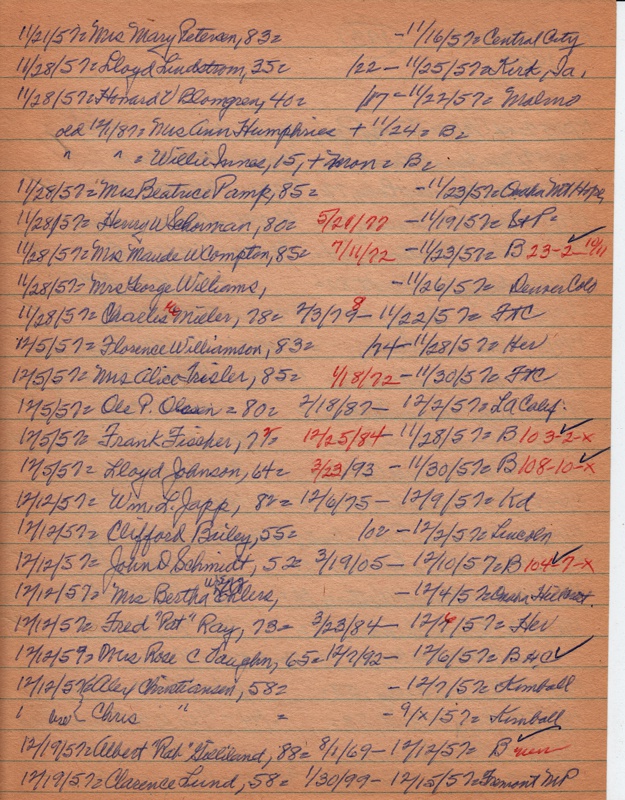 11/21/57= Mrs Mary Petersen, 83= -11/16/57= Central City
11/28/57= Lloyd Lindstrom, 35= /22 - 11/25/57= Kirk, Ia,
11/28/57= Howard V Blomgren, 40= /07 - 11/22/57= Malmo
old 12/1/87= Mrs Ann Humphries + 11/24= B=
" " = Willie Innes, 15, + Mon= B=
11/28/57= Mrs Beatrice Pamp, 85= -11/23/57= Omaha Mt Hope,
11/28/57= Henry W Schorman, 80= 5/20/77 -11/19/57= S+P=
11/28/57= Mrs Maude W Compton, 85= 7/11/72 -11/23/57= B 23-2 ✓
11/28/57= Mrs George Williams, -11/26/57= Denver Colo
11/28/57= Charles Mieler, 78= 2/3/79 - 11/22/57= FTC
12/5/57= Florence Williamson, 83= /74 - 11/28/57= Her
12/5/57= Mrs Alice Trisler, 85= 1/18/72 -11/30/57= FTC
12/5/57= Ole P. Olsson = 80= 2/18/87 - 12/2/57= LA Calif.
12/5/57= Frank Fischer, 12/25/84 - 11/28/57= B 103-2-x ✓
12/5/57= Lloyd Johnson, 64= 3/23/93 - 11/30/57= B 108-10-x ✓
12/12/57= Wm. L. Japp, 82= 12/6/75 - 12/9/57= Kd
12/12/57= Clifford Bailey, 55= /02 - 12/2/57= Lincoln
12/12/57= John D Schmidt, 52= 3/19/05 - 12/10/57= B 104-7-x ✓
12/12/57= Mrs Bertha Ehlers, -12/4/57= Omaha Hillcrest.
12/12/57= Fred "Pat" Ray, 73= 3/23/84 - 12/4/57= Her
12/12/57= Mrs Rose C Vaughn, 65= 12/7/92 - 12/6/57= BHC ✓
12/12/57= Alex Christiansen, 58= -12/7/57= Kimball
" bro Chris " = -9/x/57= Kimball
12/19/57= Albert "Rab" Gilliland, 88= 8/1/69 - 12/12/57= B ✓
12/19/57= Clarence Lund, 58= 1/30/99 - 12/15/57= Fremont MP